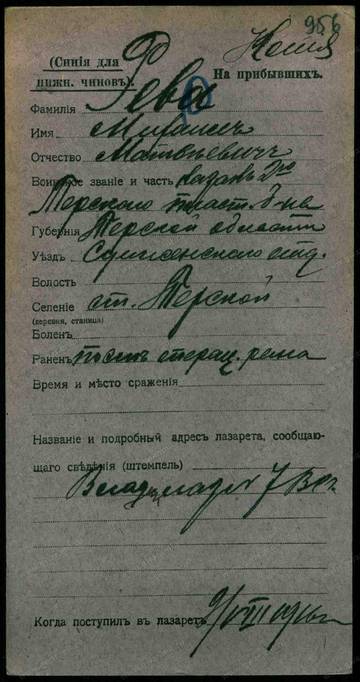 956
(Синія для
нижн. чиновъ).
На прибывшихъ.
Фамилія Рева
Имя Михаилъ
Отчество Матвѣевичъ
Воинское званіе и часть казакъ 2го
Терского пласт. б-на
Губернія Терской области
Уѣздъ Сунженского отд.
Волость
Селеніе ст. Терской
(деревня, станица)
Боленъ
Раненъ рана
Время и мѣсто сраженія
Названіе и подробный адресъ лазарета, сообщаю-
щаго свѣдѣнія (штемпель)
Когда поступилъ въ лазаретъ